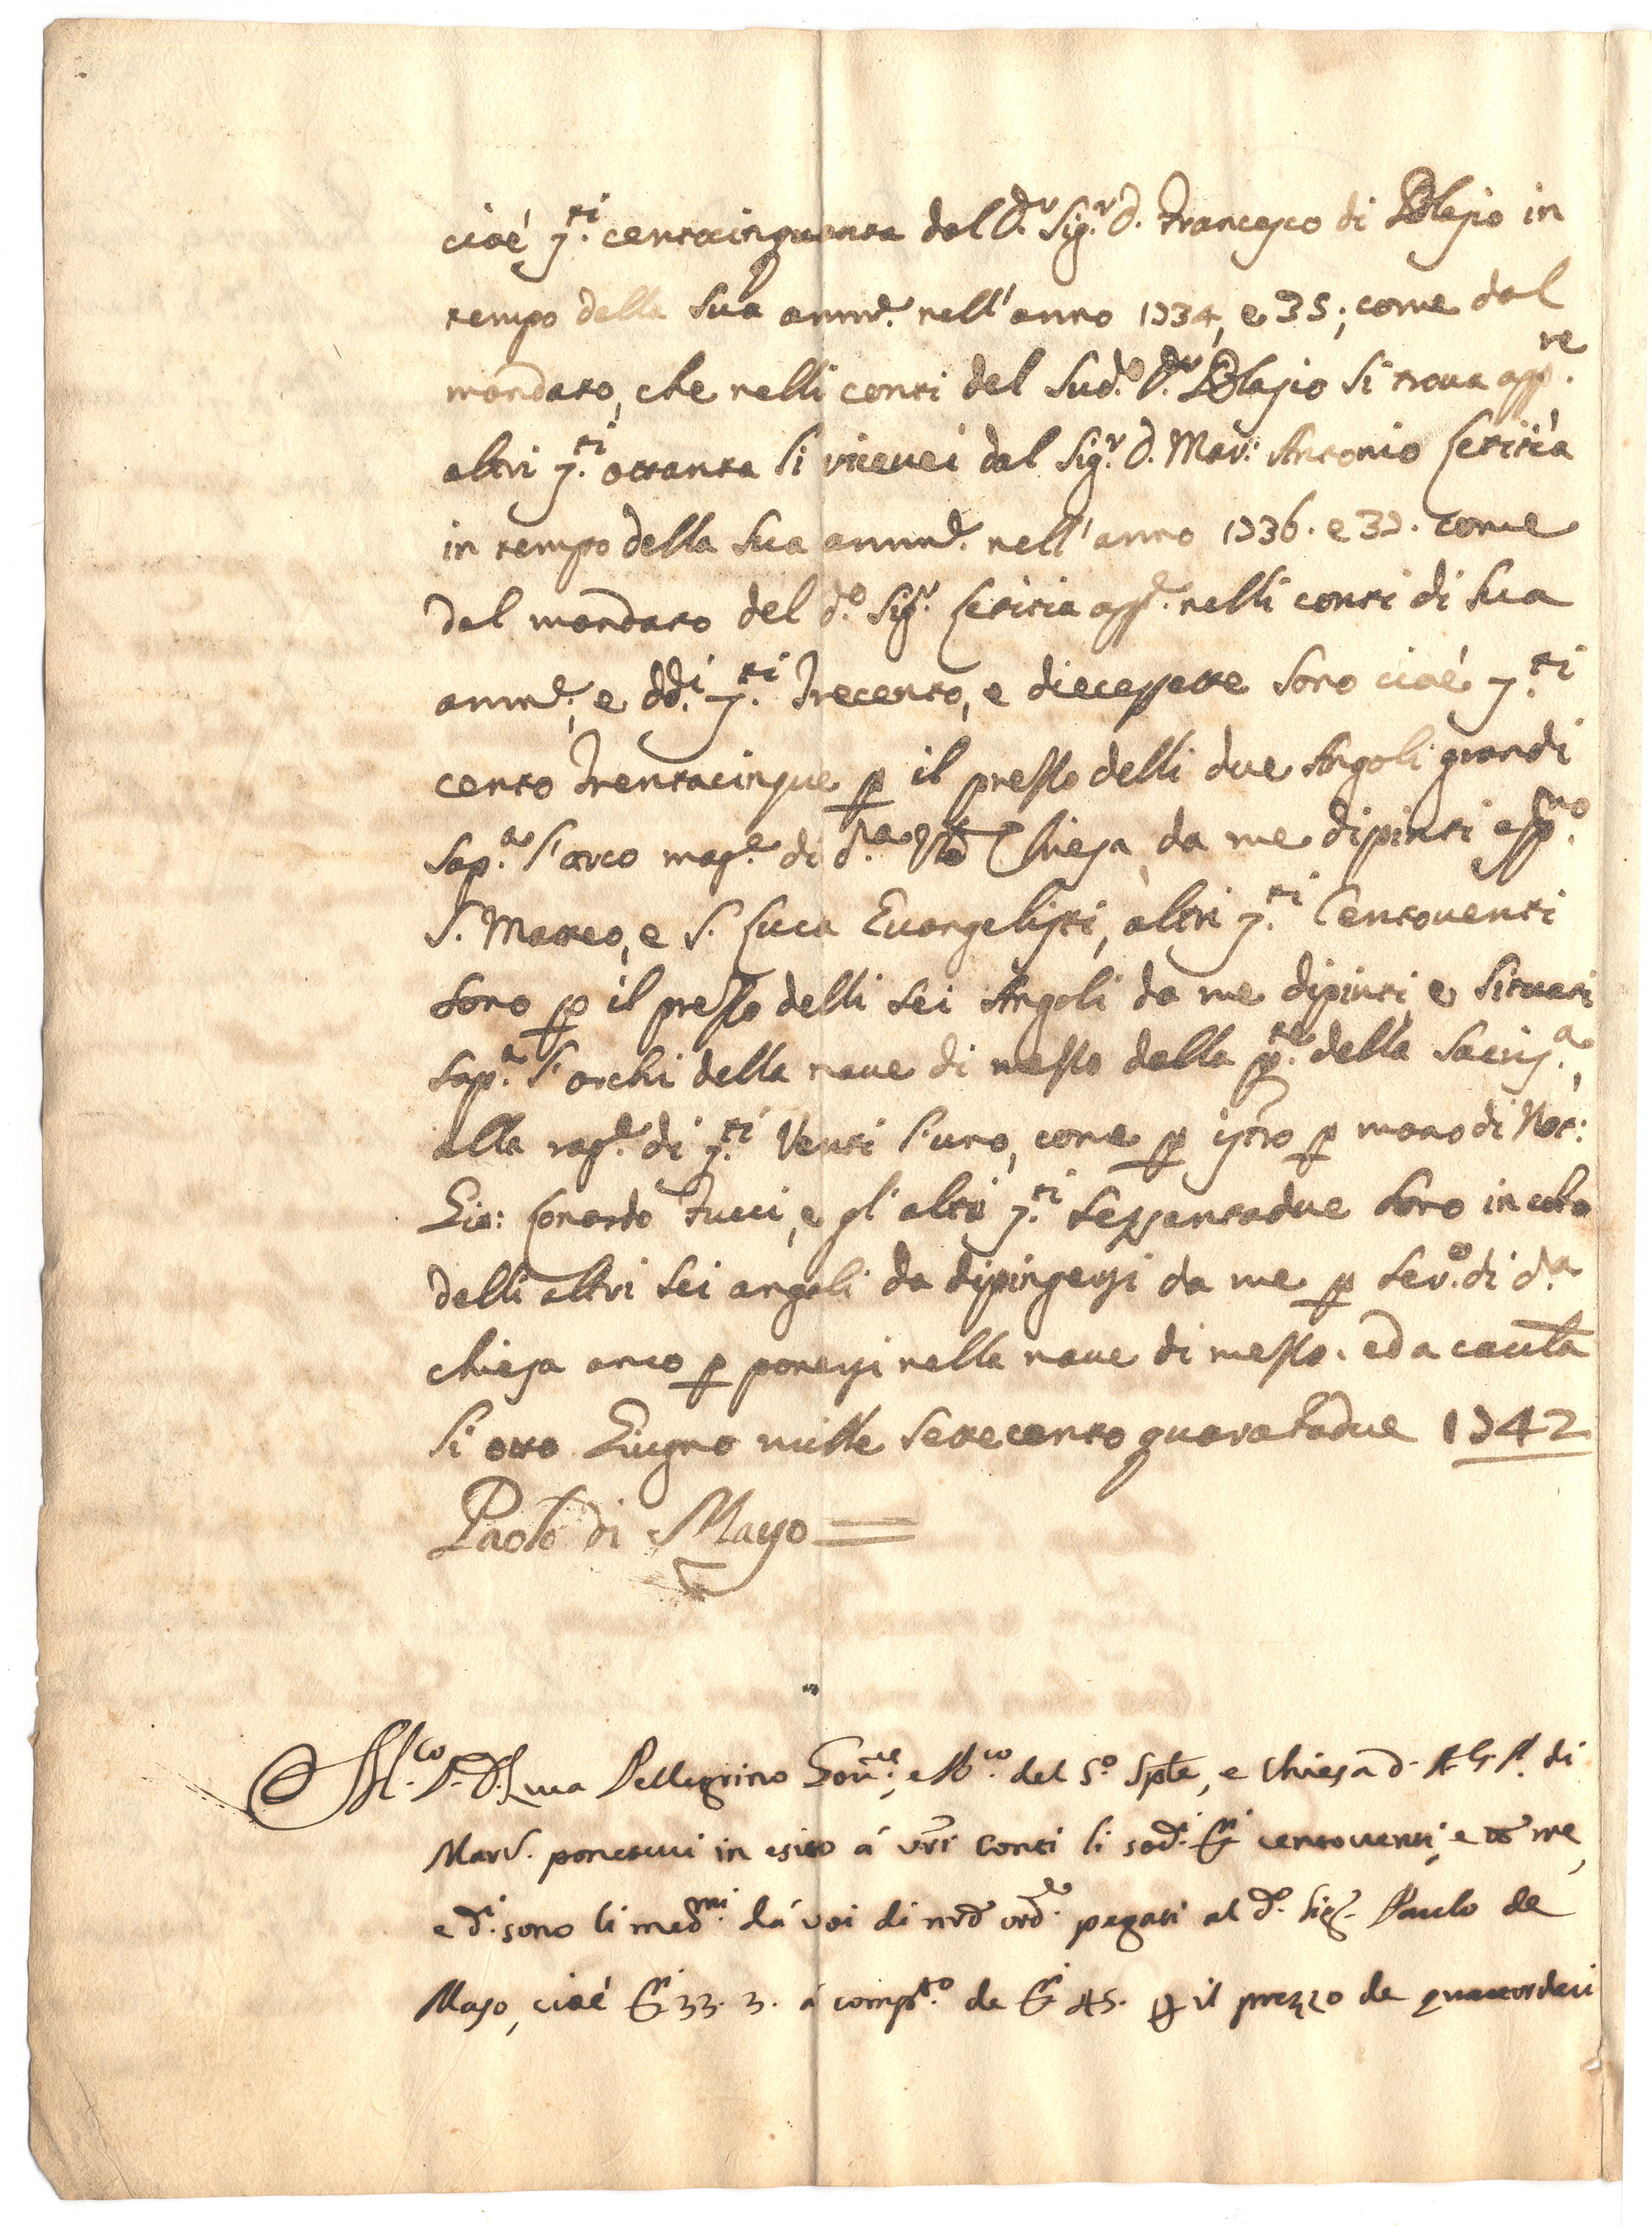 cioè d.ti centocinquanta dal D.r Sig.r D. Francesco di Blasio in
tempo della sua ammẽ. nell'anno 1734, e 35; come dal
mandato, che nelli conti del sud.o D.r Blasio si troua app.re
altri d.ti ottanta li riceuei dal Sig.r D. Mar: Antonio Letitia
in tempo della sua ammẽ. nell'anno 1736. e 37. come
dal mandato del d.o Sig.r Letitia app.e nelli conti di sua
ammẽ., e dd.i d.ti Trecento, e diecessette sono cioè d.ti
cento Trentacinque p il prezzo delli due Angoli grandi
sop.a l'arco mag.e di d.a Chiesa, da me dipinti
S. Matteo, e S. Luca Euangelisti, altri d.ti Centouenti
sono p il prezzo delli sei Angoli da me dipinti, e situati
sop.a l'archi della naue di mezzo dalla p.te della Sacris.a,
alla rag.e di d.ti Venti l'uno, come p istro p mano di Not:
Gio: Lonardo Tucci, e gl'altri d.ti sessantadue sono in cõto
delli altri sei angoli da dipingersi da me p seru.o di d.a
chiesa anco p ponersi nella naue di mezzo. ed a cautla
li otto Giugno mille settecento quarātadue 1742
Paolo di Mayo =
M.co D. Luca Pellegrino Gou.re, e del S.o Spte, e Chiesa d. A. G. P. di
Mard. ponetaui in esito á vr̃i Conti li sod.i centouenti, e me,
e d.i sono li med.mi dá voi di nrõ ord.e pagati al d.o Sig.r Paulo de
Majo, cioè 33. 3. á comp.to de 45. p il prezzo de quattordeci